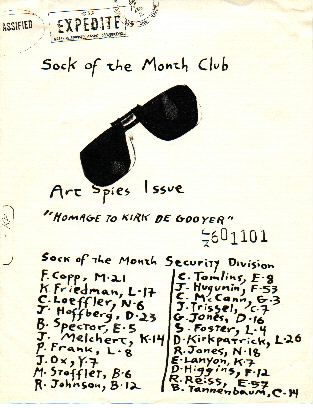 ASSIFIED
EXPEDITE
Sock of the Month Club
Art Spies Issue
"HOMAGE TO KIRK DE GOOYER"
601101
Sock of the Month Security Division
F. Copp, M-21
K. Friedman, L-17
C. Loeffler, N-6
J. Hoffberg, D-23
B. Spector, E-5
J. Melchert, K-14
P. Frank, L-8
J. Ox, Y-7
M. Stofflet, B-6
R. Johnson, B-12
C. Tomlins, E-8
J. Hugunin, F-53
C. McCann, G-3
J. Trissel, C-7
G. Jones, D-16
S. Foster, L-4
D. Kirkpatrick, L-26
R. Jones, N-18
E. Lanyon, K-7
D. Higgins, F-12
R. Reiss, E-57
B. Tannenbaum, C-14